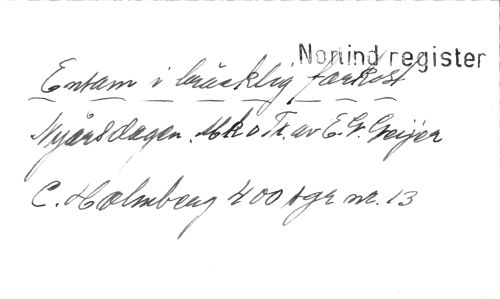 Nortind register
Ensam i bräcklig farkost
Nyårsdagen. Mk o Tx. av E. G. Geijer
C. Holmberg 400 sgr nr. 13